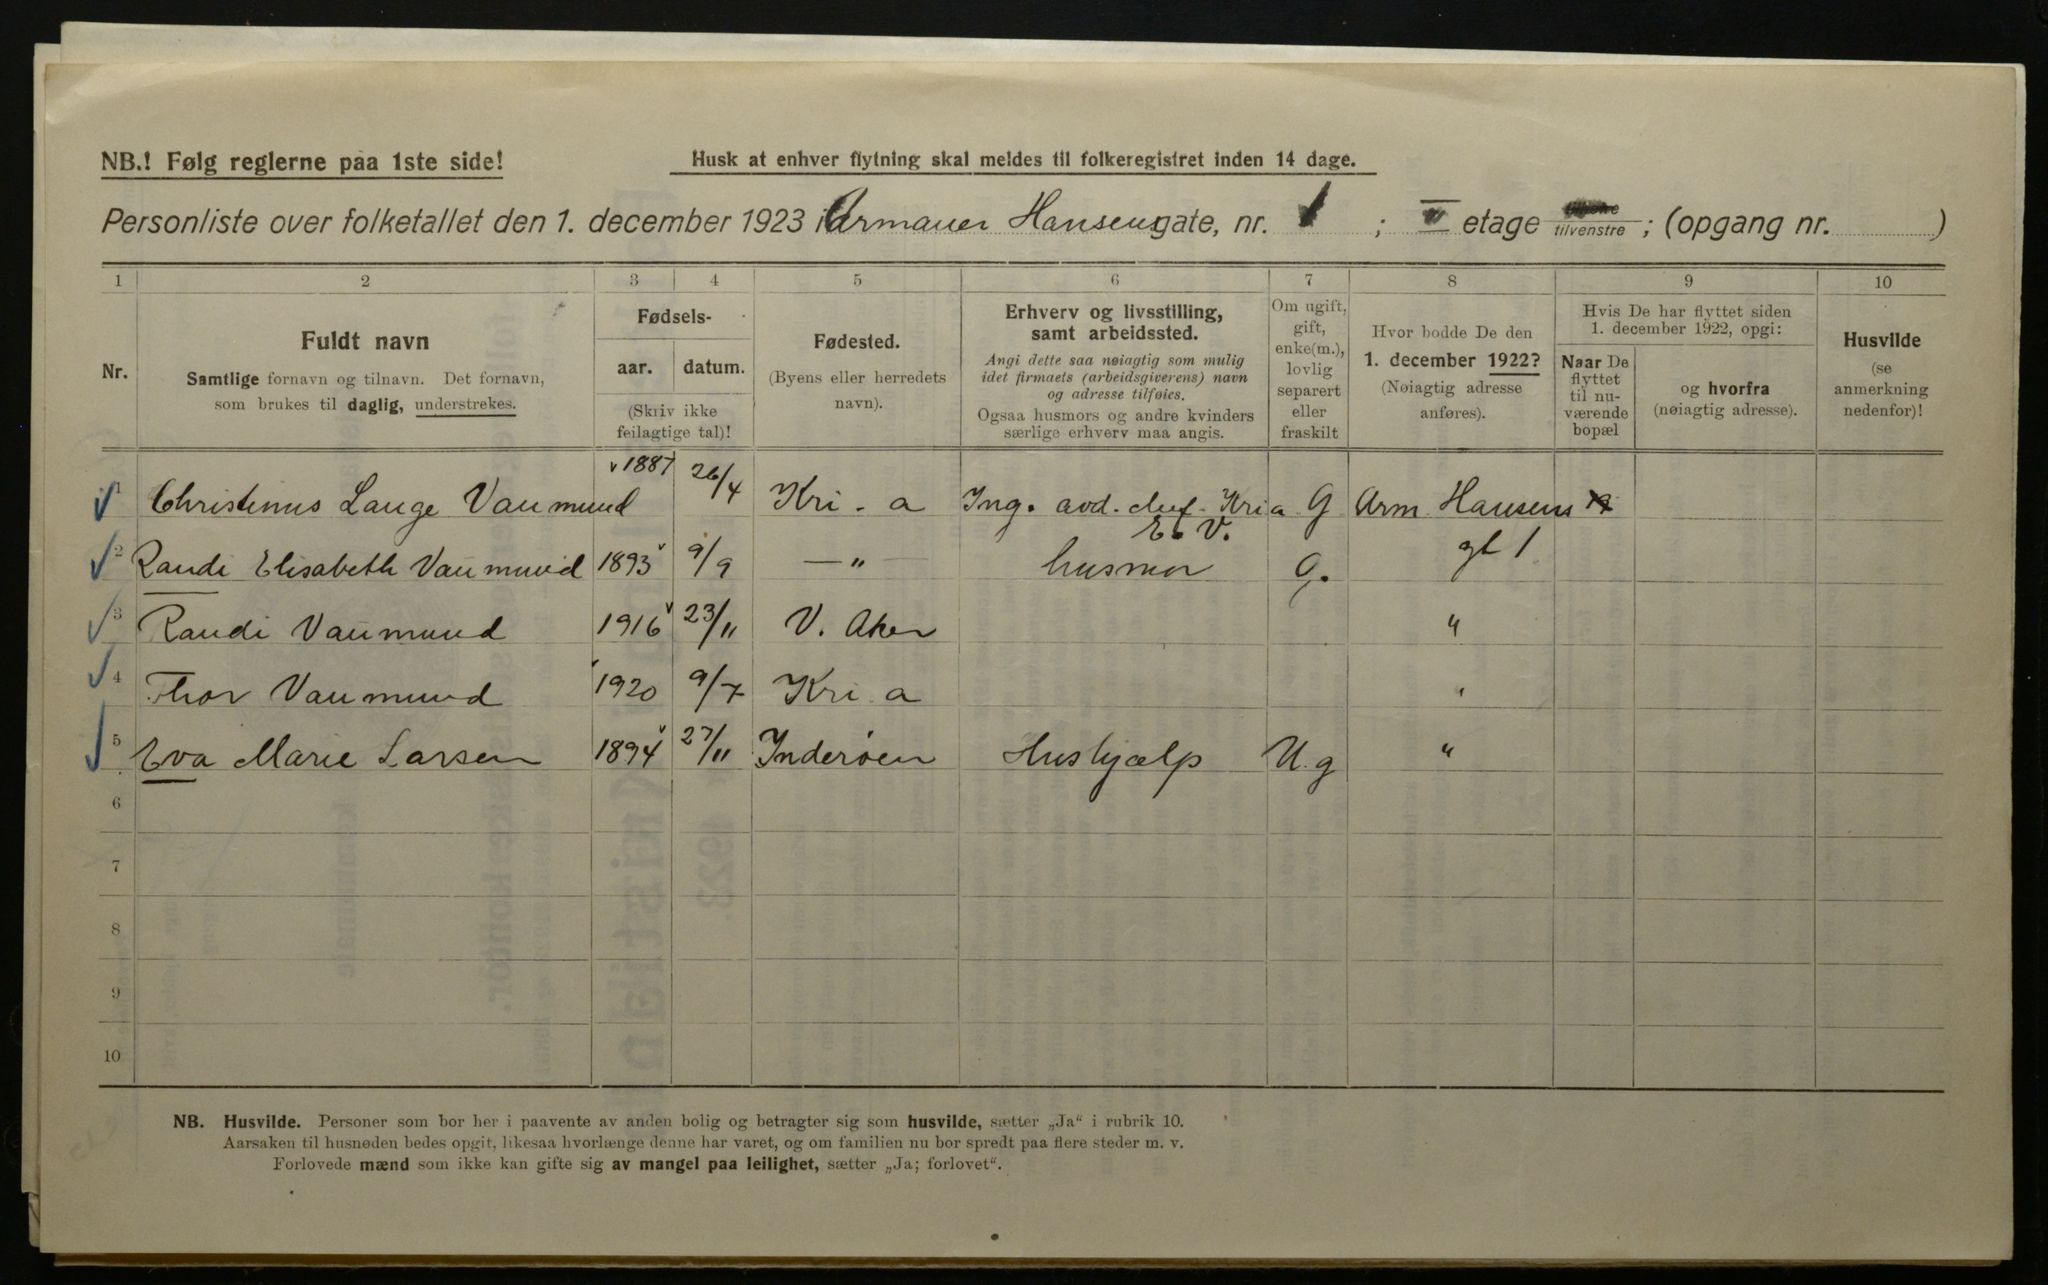 NB.! Følg reglerne paa 1ste side!
Husk at enhver flytning skal meldes til folkeregistret inden 14 dage.
Personliste over folketallet den 1. december 1923 i Armauer Hansens gate, nr. 1 ; II etage tilvenstre ; (opgang nr. )
1 2 3 4 5 6 7 8 9 10
Nr.
Fuldt navn
Samtlige fornavn og tilnavn. Det fornavn,
som brukes til daglig, understrekes.
Fødsels-
aar. datum.
(Skriv ikke
feilagtige tal)!
Fødested.
(Byens eller herredets
navn).
Erhverv og livsstilling,
samt arbeidssted.
Angi dette saa nøiagtig som mulig
idet firmaets (arbeidsgiverens) navn
og adresse tilføies.
Ogsaa husmors og andre kvinders
særlige erhverv maa angis.
Om ugift,
gift,
enke(m.),
lovlig
separert
eller
fraskilt
Hvor bodde De den
1. december 1922?
(Nøiagtig adresse
anføres).
Hvis De har flyttet siden
1. december 1922, opgi:
Naar De
flyttet
til nu-
værende
bopæl
og hvorfra
(nøiagtig adresse).
Husvilde
(se
anmerkning
nedenfor)!
1 Christinus Lange Vaumund 1887 26/4 Kri. a Ing. avd. chef. Kri a G Arm. Hansens
E. V.
2 Randi Elisabeth Vaumund 1893 9/9 — " — husmor G. gt 1
3 Randi Vaumund 1916 23/11 V. Aker "
4 Thor Vaumund 1920 9/7 Kri. a "
5 Eva Marie Larsen 1894 27/11 Inderøen Hushjælp U. g "
6
7
8
9
10
NB. Husvilde. Personer som bor her i paavente av anden bolig og betragter sig som husvilde, sætter „Ja“ i rubrik 10.
Aarsaken til husnøden bedes opgit, likesaa hvorlænge denne har varet, og om familien nu bor spredt paa flere steder m. v.
Forlovede mænd som ikke kan gifte sig av mangel paa leilighet, sætter „Ja; forlovet“.